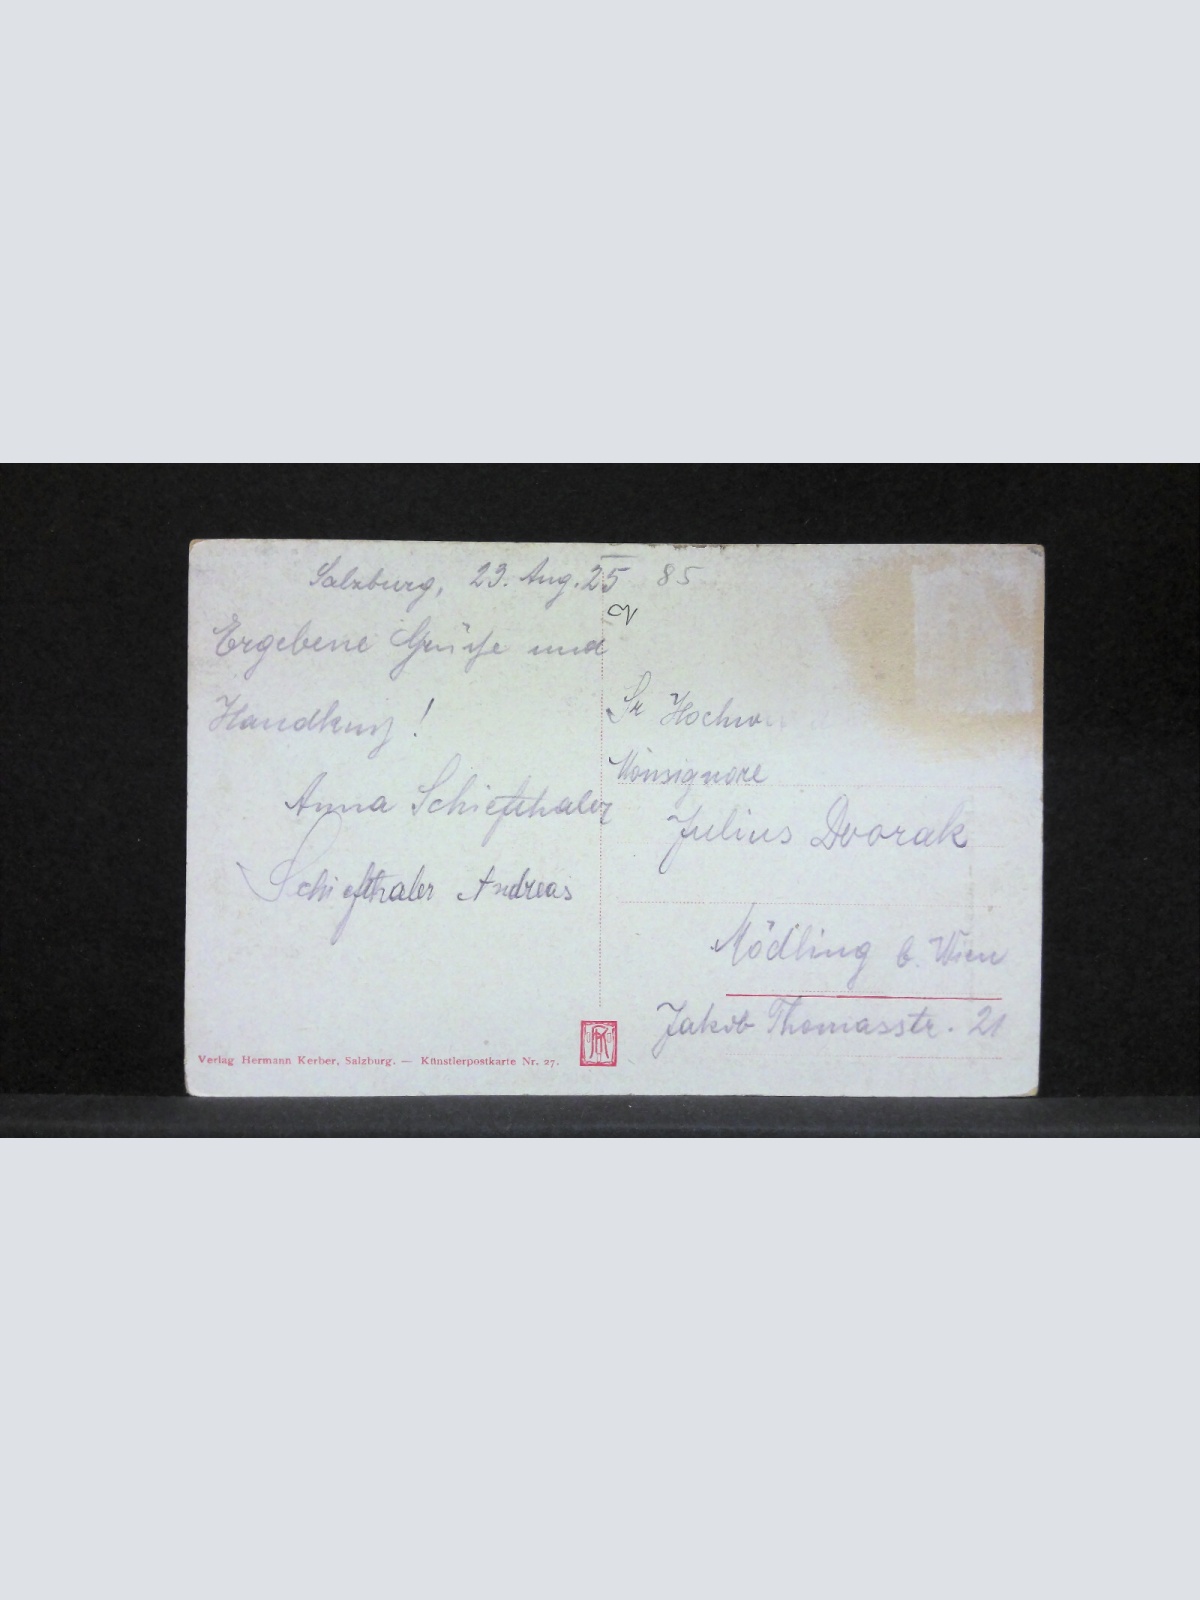 Salzburg, 23. Aug. 25
85
Ergebene Grüße und
Handkuß!
Anna Schiefthaler
Schiefthaler Andreas
Sr Hochw
Monsignore
Julius Dvorak
Mödling b. Wien
Jakob Thomasstr. 21
Verlag Hermann Kerber, Salzburg. — Künstlerpostkarte Nr. 27.